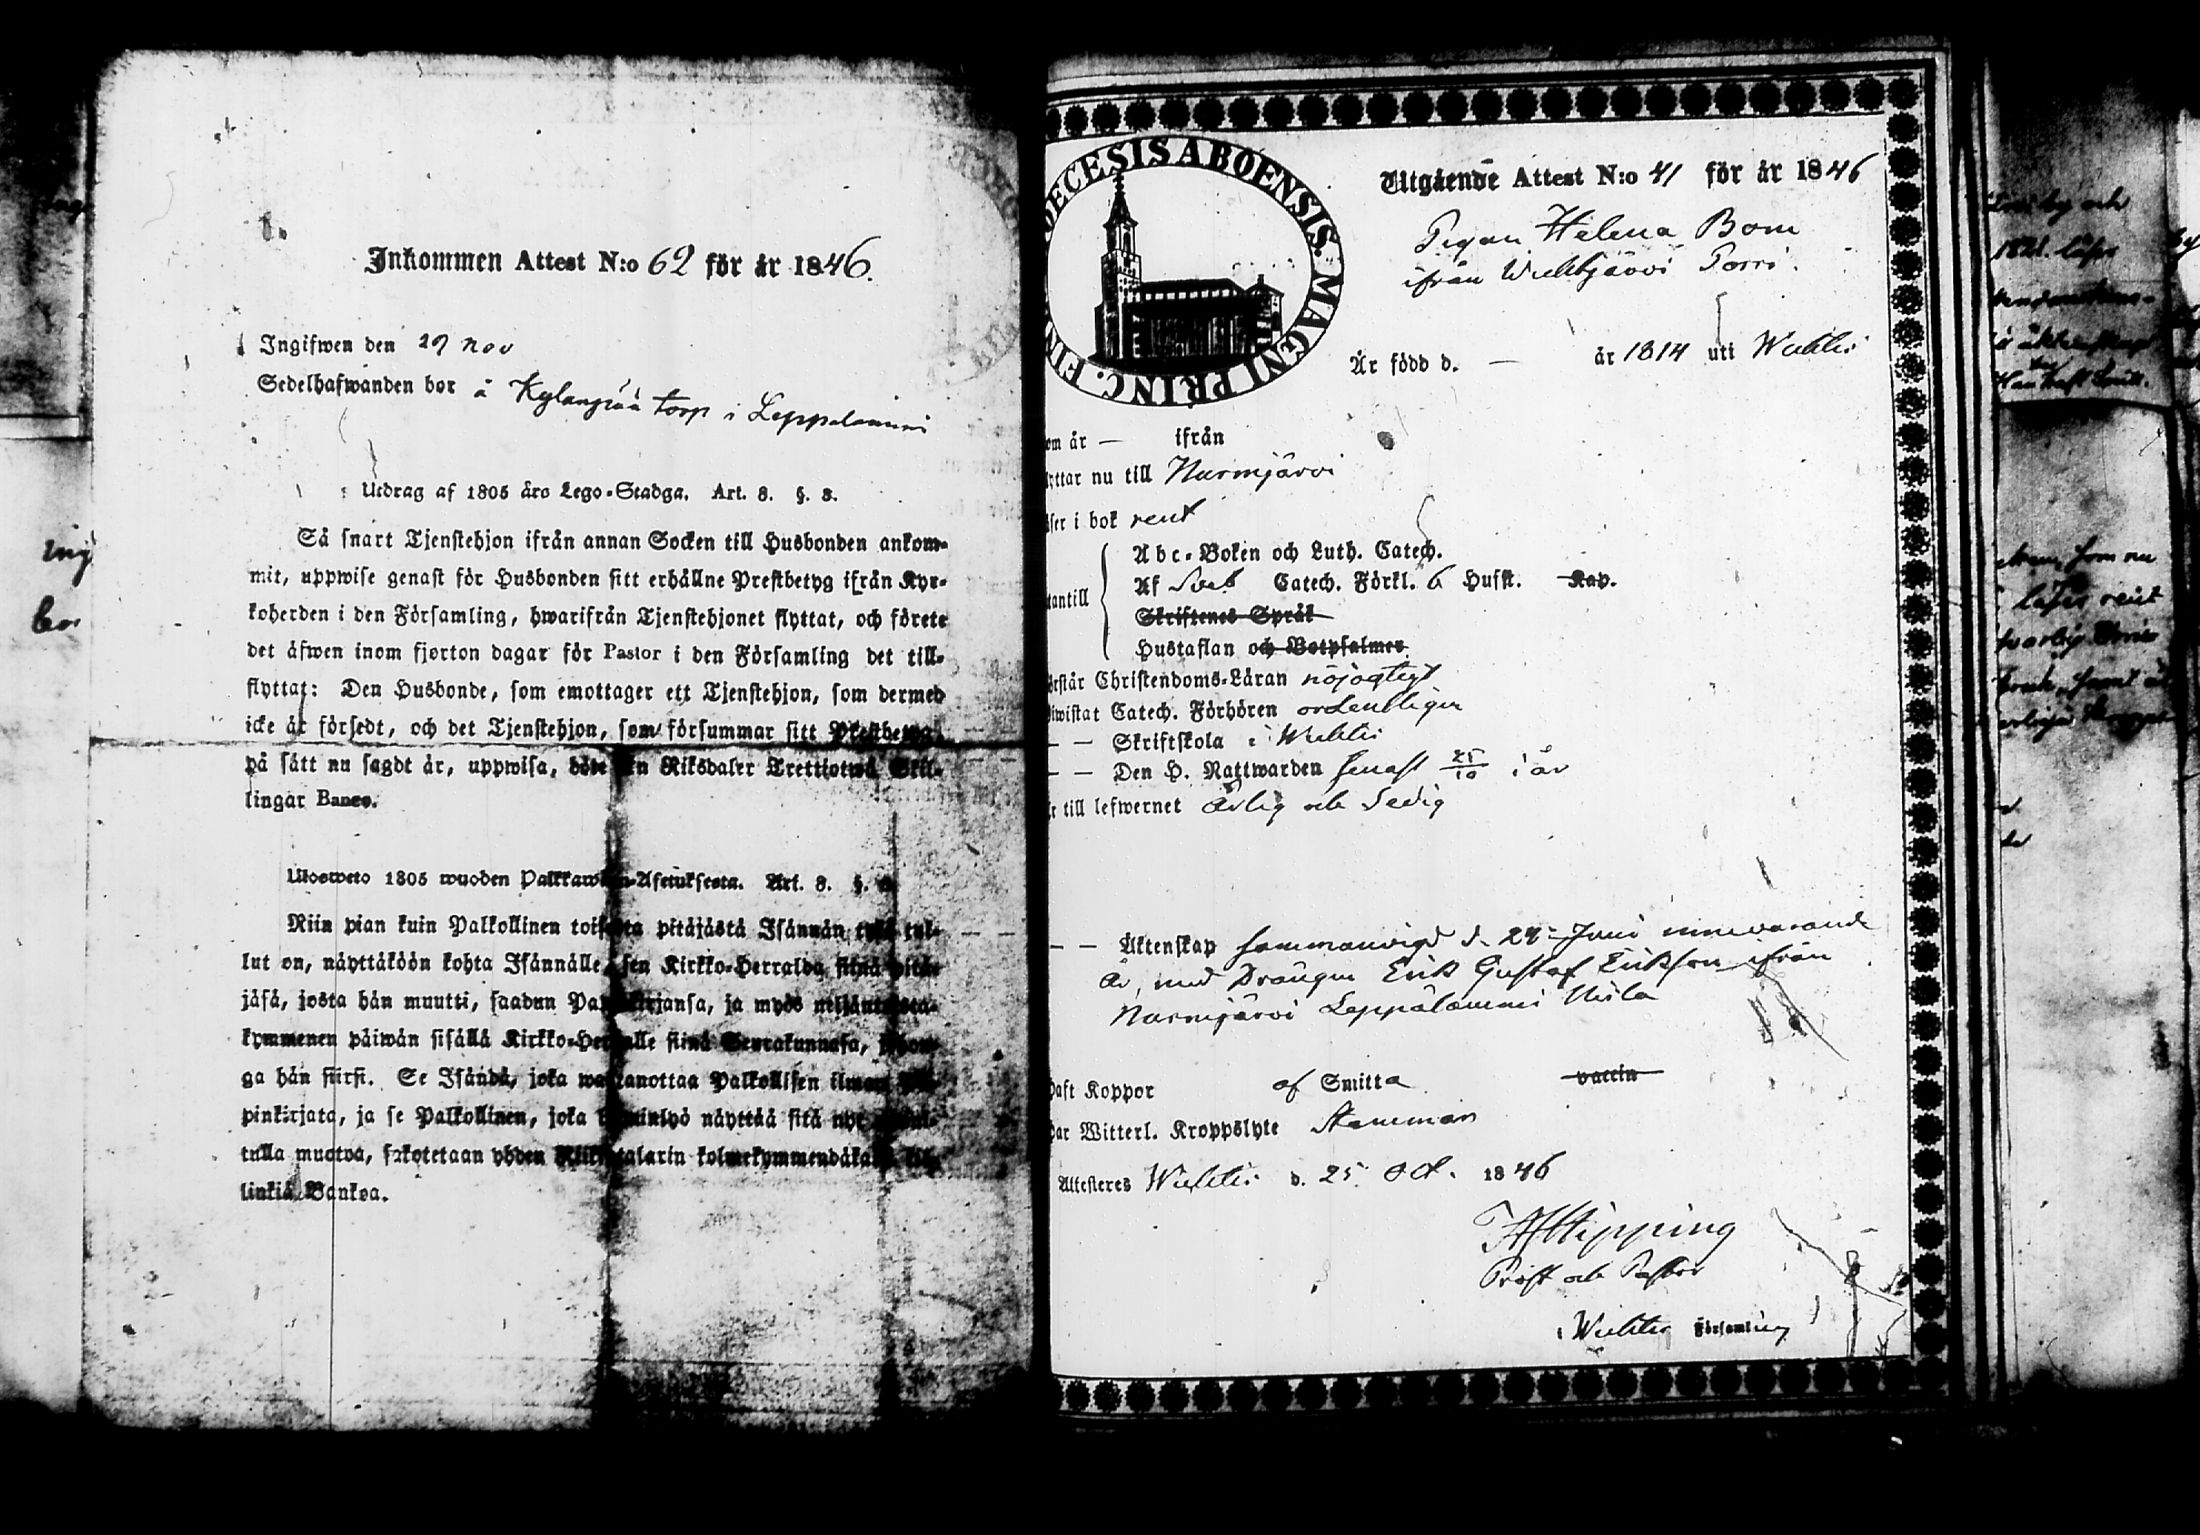 Inkommen Attest N:o 62 för år 1846.
Ingifwen den 29 nov
Sedelhafwanden bor å Kylänpää torp i Leppelammi
Utdrag af 1805 års Lego-Stadga. Art. 8. §. 8.
Så snart Tjenstehjon ifrån annan Socken till Husbonden ankom-
mit, uppwise genast för Husbonden sitt erhållne Prestbetyg ifrån Kyr-
koherden i den Församling, hwarifrån Tjenstehjonet flyttat, och förete
det äfwen inom fjorton dagar för Pastor i den Församling det till-
flyttat: Den Husbonde, som emottager ett Tjenstehjon, som dermed
icke är försedt, och det Tjenstehjon, som försummar sitt Prestbetyg,
på sätt nu sagdt är, uppwisa, böte en Riksdaler Trettiotwå Skil-
lingar Banco.
Ulosweto 1805 wuoden Palkkawäen-Asetuksesta. Art. 8. §.
Niin pian kuin Palkollinen toisesta pitäjästä Isännän tykö tul-
lut on, näyttäköön kohta Isännälle sen Kirkko-Herralda siinä pitä-
jäsä, josta hän muutti, saadun Papinkirjansa, ja myös neljäntoista-
kymmenen päiwän sisällä Kirkko-Herralle siinä Seurakunnasa, johon-
ga hän siirsi. Se Isändä, joka wastanottaa Palkollisen ilman Pa-
pinkirjata, ja se Palkollinen, joka näyttää sitä nyt
tulla muotoa, sakotetaan yhden Riksitalarin kolmekymmendäkaksi kil-
linkiä Bankoa.
DIOECESIS ABOENSIS MAGNI PRINC. FIN
Utgående Attest N:o 41 för år 1846
Pigan Helena Bom
ifrån Wichtijärvi Porri.
Är född d. — år 1814 uti Wichtis
om år — ifrån
yttar nu till Nurmijärvi
äser i bok rent
tantill
Abc-Boken och Luth. Catech.
Af Sveb Catech. Förkl. 6 Hufst. Kap.
Skriftenes Språk
Hustaflan och Botpsalmer
örstår Christendoms-Läran nöjogtigt
iwistat Catech. Förhören ordentligen
— — Skriftskola i Wichtis
— — Den H. Nattwarden senast 25/10 i år
är till lefwernet Ärlig och Sedig
— — Äktenskap sammanvigd d. 24 Juni innevarande
år, med Drängen Erik Gustaf Erikson ifrån
Nurmijärvi Leppälammi Uisla
haft Koppor af Smitta vaccin
har Witterl. Kroppslyte Stamman
Attesteres Wichtis d. 25 Oct. 1846
Hipping
Prost och Pastor
i Wichtis Församling